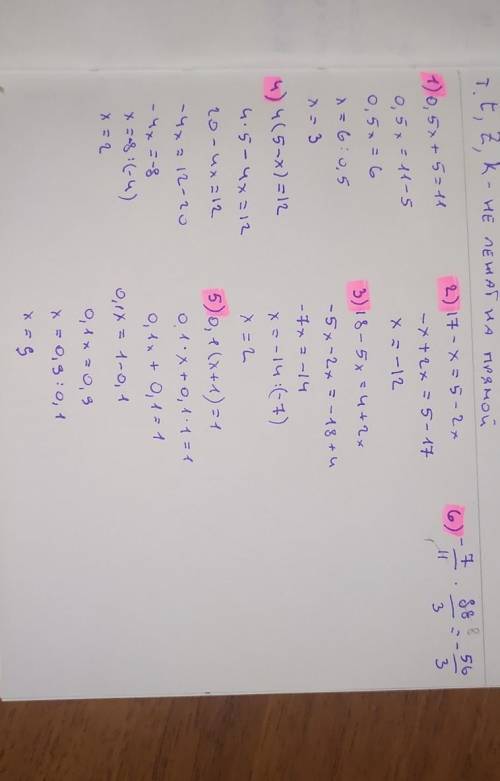 т. t, Z, k - не лежат на прямой
1) 0,5x + 5 = 11
0,5x = 11 - 5
0,5x = 6
x = 6 : 0,5
x = 3
4) 4(5-x) = 12
4·5 - 4x = 12
20 - 4x = 12
-4x = 12 - 20
-4x = -8
x = -8 : (-4)
x = 2
2) 17 - x = 5 - 2x
-x + 2x = 5 - 17
x = -12
3) 18 - 5x = 4 + 2x
-5x - 2x = -18 + 4
-7x = -14
x = -14 : (-7)
x = 2
5) 0,1(x+1) = 1
0,1·x + 0,1·1 = 1
0,1x + 0,1 = 1
0,1x = 1 - 0,1
0,1x = 0,9
x = 0,9 : 0,1
x = 9
6) -7/11 · 88 8/3 = -56/3